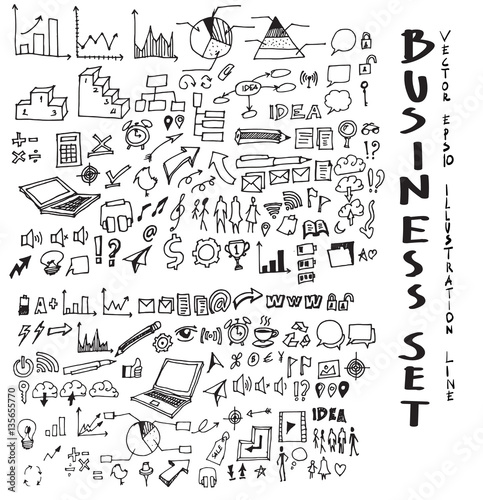 BUSINESS SET
VECTOR EPS10 ILLUSTRATION LINE
1
2
3
1
2
3
IDEA
IDEA
A+
@
WWW
IDEA
SALE
135655770
Adobe Stock